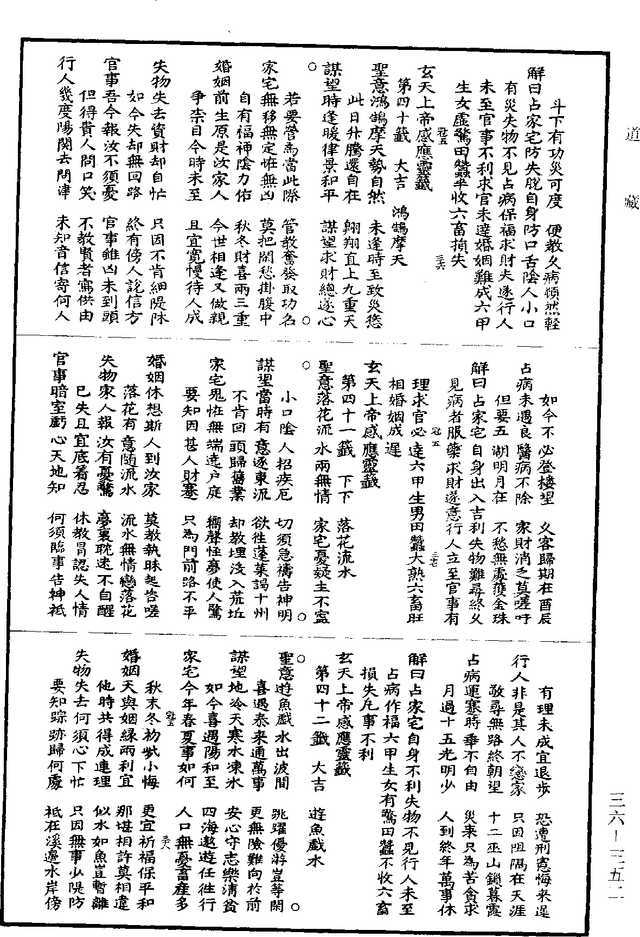 道藏
斗下有功災可度　便教久病頓然輕
解曰占家宅防失脫自身防口舌陰人小口
有災失物不見占病保福求財夫遂行人
未至官事不利求官未達婚姻難成六甲
生女虛驚田蠶半收六畜損失
玄天上帝感應靈籤
第四十籤　大吉　鴻鵠摩天
聖意鴻鵠摩天勢自然　未逢時至致災愆
此日升騰還自在　翱翔直上九重天
謀望時逢暖律景和平　謀望求財總遂心
若要營為當此際　管教奮發取功名
家宅無移無定恠無凶　莫把閑愁掛腹中
自有福神陰力佑　秋冬財喜兩三重
婚姻前生原是汝家人　今世相逢又做親
爭柰目今時未至　且宜寬慢待人成
失物失去資財却自忙　只因不肯細隄防
如今失却無回路　終有傍人說信方
官事吾今報汝不須憂　官事雖凶未到頭
但得貴人開口笑　不教賢者寫供由
行人幾度陽關去問津　未知音信寄何人
如今不必登樓望　久客歸期在酉辰
占病未遇良醫病不除　家財消乏莫嗟吁
但要五湖明月在　不愁無處覓金珠
解曰占家宅自身出入吉利失物難尋終久
見病者服藥求財遂意行人立至官事有
理求官必達六甲生男田蠶大熟六畜旺
相婚姻成遲
玄天上帝感應靈籤
第四十一籤　下下　落花流水
聖意落花流水兩無情　家宅憂疑主不寧
小口陰人招疾厄　切須急禱告神明
謀望當時有意逐東流　欲往蓬萊謁十州
不肯回頭歸舊業　却教埋没入荒坵
家宅鬼恠無端遶戶庭　嚮聲怪夢使人驚
要知因甚人財蹇　只為門前路不平
婚姻休想斯人到汝家　莫教執昧起咨嗟
落花有意隨流水　流水無情戀落花
失物家人報汝有憂驚　夢裏耽迷不自醒
已失且宜底着忍　休教冒認失人情
官事暗室虧心天地知　何須臨事告神祇
有理未成宜退步　恐遭刑憲悔來遲
行人非是其人不戀家　只因阻隔在天涯
敬尋無路終朝望　十二巫山鎖暮霞
占病運蹇時乖不自由　災來只為苦貪求
月過十五光明少　人到終年萬事休
解曰占家宅自身不利失物不見行人未至
占病作福六甲生女有驚田蠶不收六畜
損失凡事不利
玄天上帝感應靈籤
第四十二籤　大吉　遊魚戲水
聖意遊魚戲水出波間　跳躍優游豈等閑
喜遇泰來通萬事　更無險難向於前
謀望地冷天寒水凍冰　安心守志樂清貧
如今喜遇陽和至　四海遨遊任往行
家宅今年春夏事如何　人口無憂畜產多
秋末冬初災小悔　更宜祈福保平和
婚姻天與姻緣兩利宜　那堪相許莫相違
他時共得成連理　似水如魚豈暫離
失物失去何須心下忙　只因無事少隄防
要知踪跡歸何處　祇在溪邊水岸傍
三六—二五二